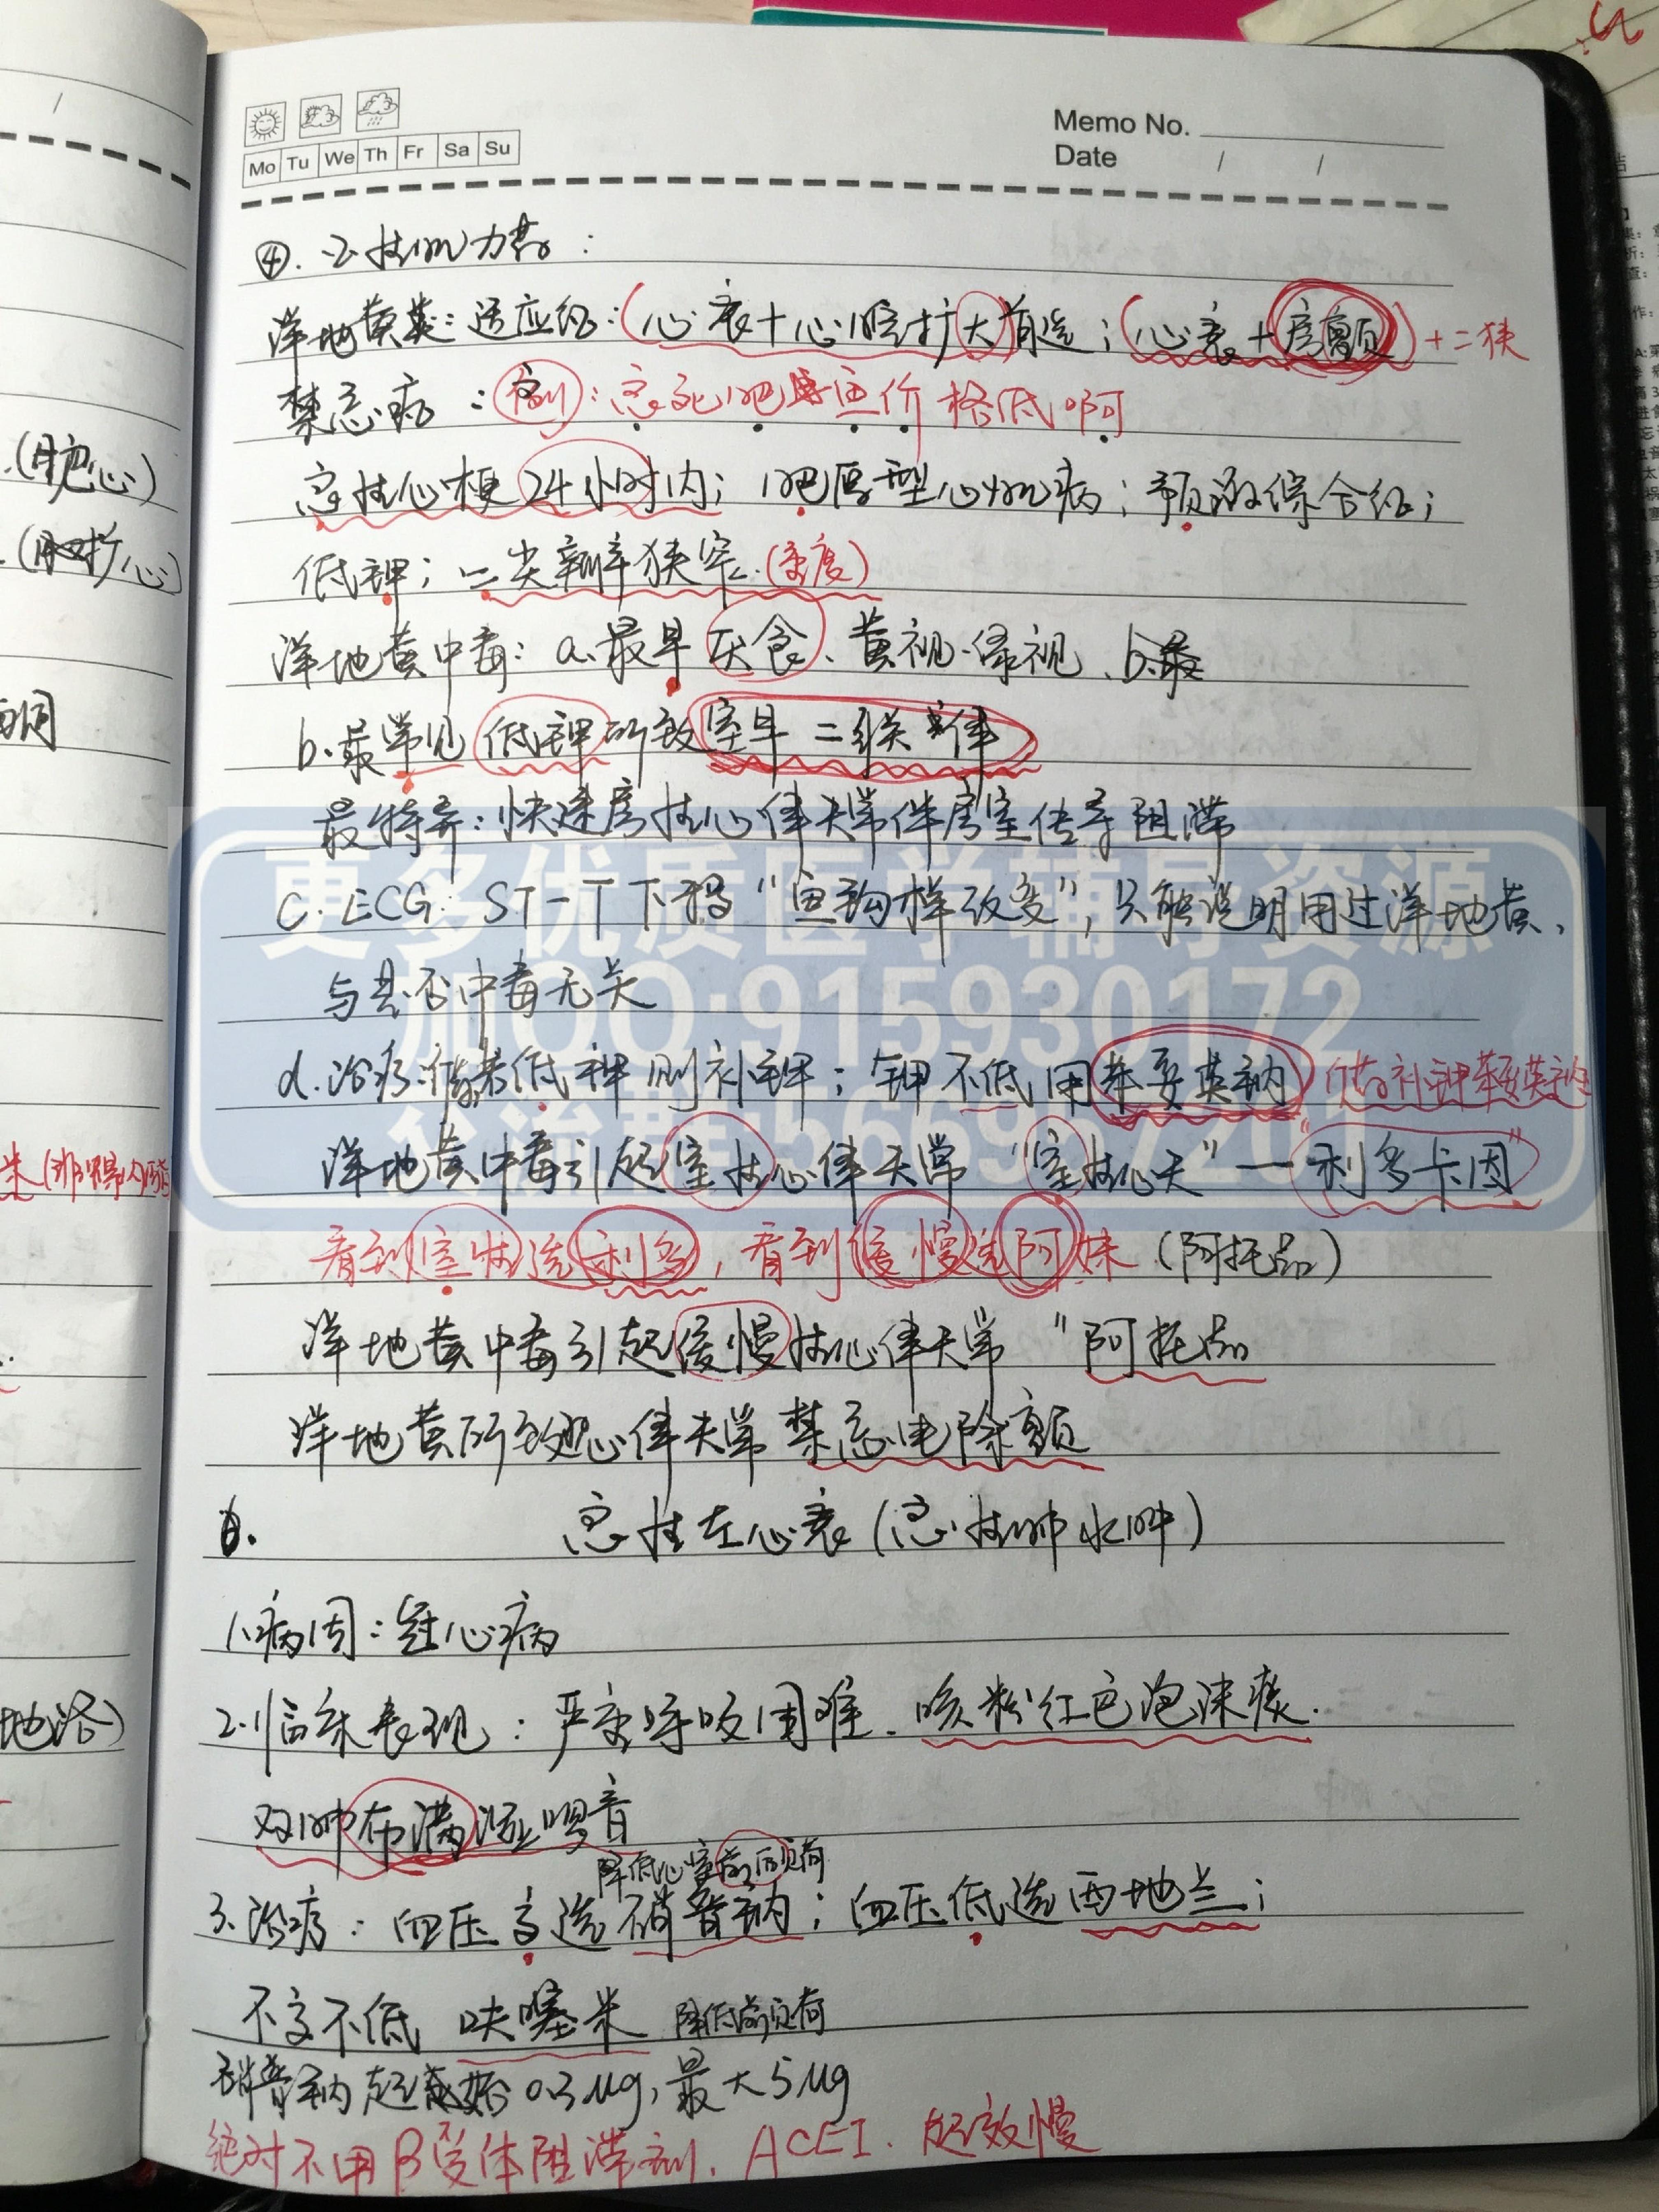 Memo No.
Mo Tu We Th Fr Sa Su
Date / /
④. 正性肌力药:
洋地黄类: 适应征: (心衰+心脏扩大)首选; (心衰+房颤)+二狭
禁忌症: 急死肥 鱼价格低啊
急性心梗24小时内; 肥厚型心肌病; 预激综合征;
低钾; 二尖瓣狭窄.(重度)
洋地黄中毒: a.最早厌食、黄视、绿视、b.最
b.最常见低钾所致室早二联律
最特异: 快速房性心律失常伴房室传导阻滞
C. ECG: ST-T下移“鱼钩样改变”, 只能说明用过洋地黄、
与是否中毒无关
d.治疗: 低钾则补钾; 钾不低用苯妥英钠 低补钾苯妥英钠
洋地黄中毒引起室性心律失常 “室性心失”—“利多卡因”
看到室性选利多, 看到缓慢选阿妹 (阿托品)
洋地黄中毒引起缓慢性心律失常 "阿托品
洋地黄所致心律失常禁忌电除颤
急性左心衰(急性肺水肿)
1.病因: 冠心病
2.临床表现: 严重呼吸困难、咳粉红色泡沫痰.
双肺布满湿啰音
降低心室前后负荷
3.治疗: 血压高选硝普钠; 血压低选西地兰;
不高不低 呋噻米 降低前负荷
硝普钠起始0.3μg, 最大5μg
绝对不用β受体阻滞剂、ACEI. 起效慢
更多优质医学辅导资源
加QQ:915930172
交流群: